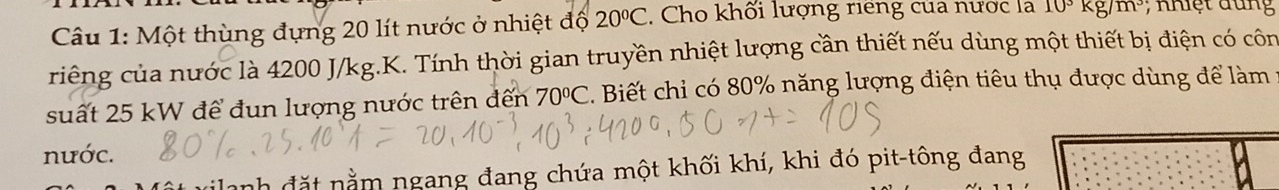 Câu 1: Một thùng đựng 20 lít nước ở nhiệt độ 20⁰C. Cho khối lượng riêng của nước là 10³ kg/m³; nhiệt dung
riêng của nước là 4200 J/kg.K. Tính thời gian truyền nhiệt lượng cần thiết nếu dùng một thiết bị điện có côn
suất 25 kW để đun lượng nước trên đến 70⁰C. Biết chỉ có 80% năng lượng điện tiêu thụ được dùng để làm
nước. 80%.25.10³ = 20.10⁻³.10³.4200.50 => t = 10S
xilanh đặt nằm ngang đang chứa một khối khí, khi đó pit-tông đang